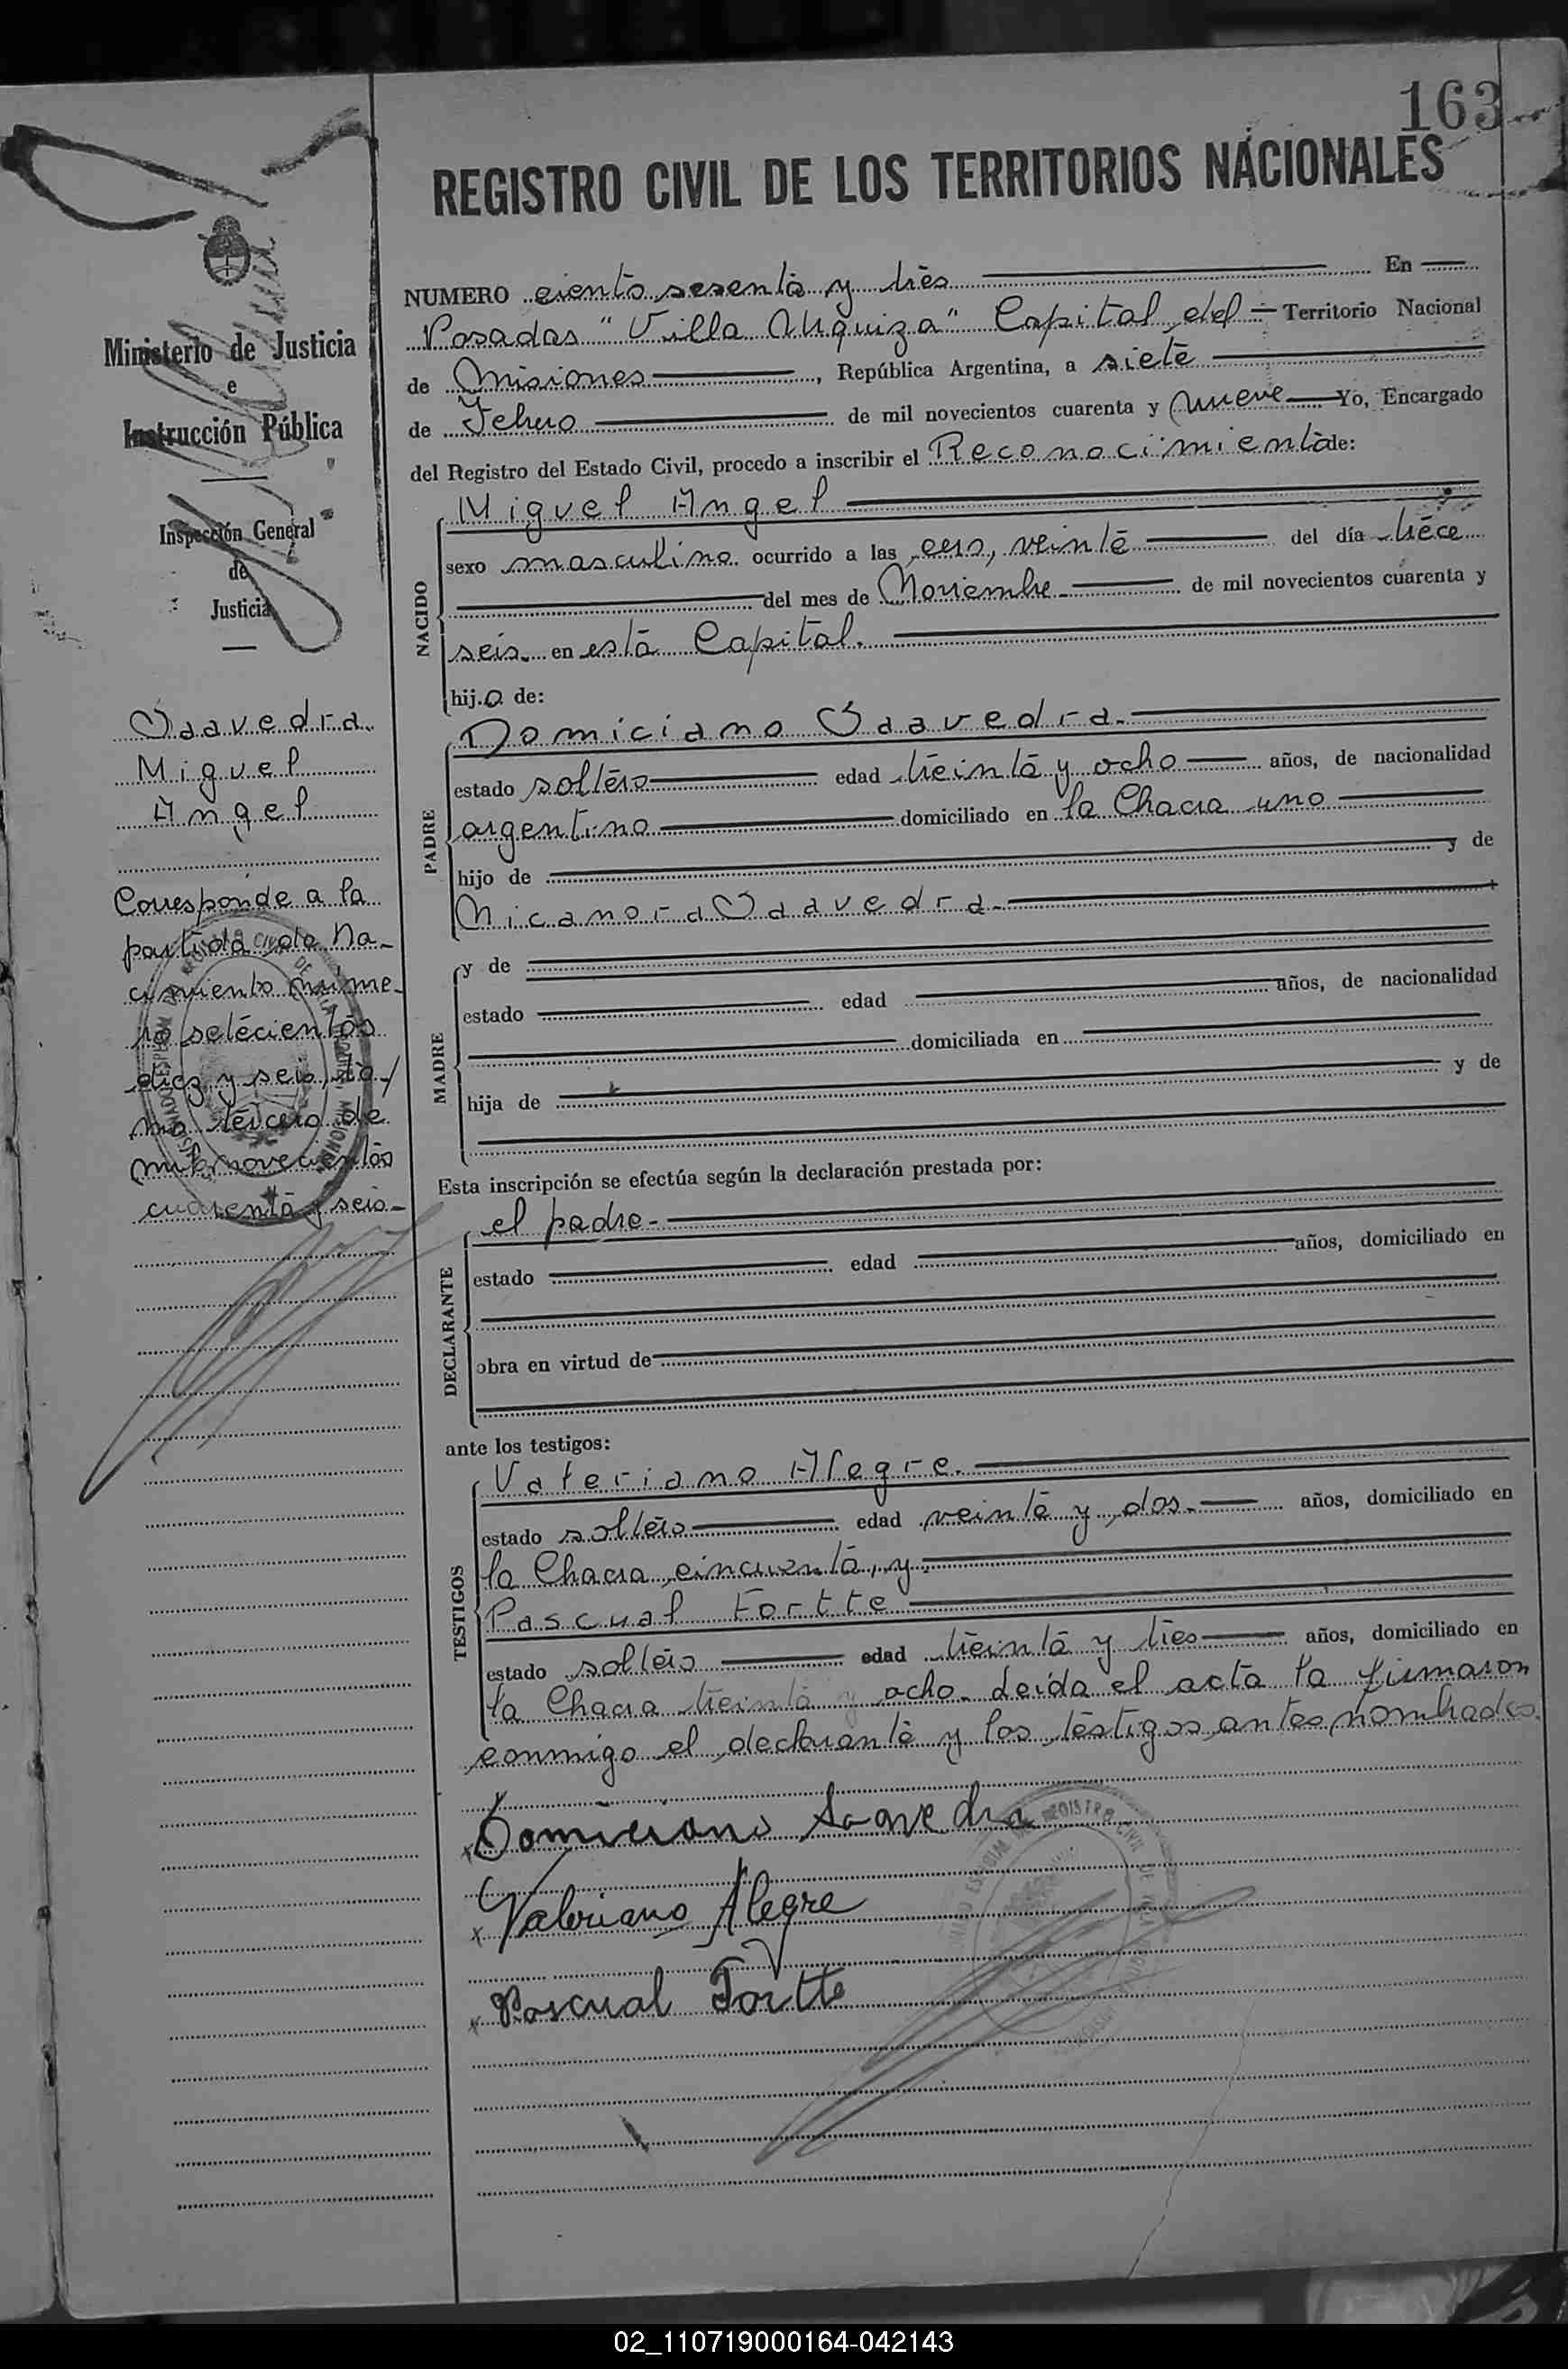 163
REGISTRO CIVIL DE LOS TERRITORIOS NACIONALES
Ministerio de Justicia
e
Instrucción Pública
Inspección General
de
Justicia
Saavedra
Miguel
Angel
Corresponde a la
partida de Na-
cimiento núme-
ro setecientos
diez y seis, to-/
mo tercero de
mil novecientos
cuarenta y seis-
NUMERO ciento sesenta y tres En
Posadas "Villa Urquiza" Capital del Territorio Nacional
de Misiones, República Argentina, a siete
de Febrero de mil novecientos cuarenta y nueve Yo, Encargado
del Registro del Estado Civil, procedo a inscribir el Reconocimiento de:
NACIDO
Miguel Angel
sexo masculino ocurrido a las cero, veinte del día trece
del mes de Noviembre de mil novecientos cuarenta y
seis en esta Capital.
hijo de:
PADRE
Domiciano Saavedra.
estado soltero edad treinta y ocho años, de nacionalidad
argentino domiciliado en la Chacra uno
hijo de y de
Nicanora Saavedra.
MADRE
y de
estado edad años, de nacionalidad
domiciliada en
hija de y de
Esta inscripción se efectúa según la declaración prestada por:
DECLARANTE
el padre-
estado edad años, domiciliado en
obra en virtud de
ante los testigos:
TESTIGOS
Valeriano Alegre.
estado soltero edad veinte y dos. años, domiciliado en
la Chacra cincuenta, y
Pascual Fortte
estado soltero edad treinta y tres años, domiciliado en
la Chacra treinta y ocho. Leída el acta la firmaron
conmigo el declarante y los testigos antes nombrados.
Domiciano Saavedra
Valeriano Alegre
Pascual Fortte
02_110719000164-042143